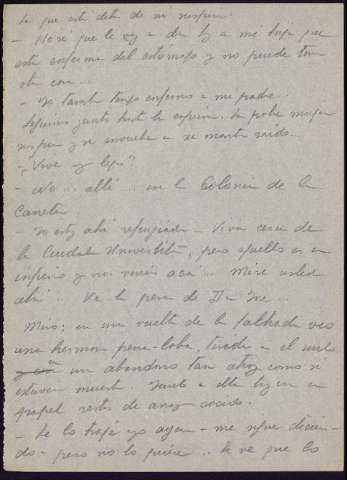 lo que esté detrás de mi
- No sé que le voy a dar hoy a me hija que
está enferma del estómago y no puede tomar
otra cosa
- Yo también tengo enfermo a me padre.
Seguimos juntos hasta la esquina. La pobre mujer
y se marcha
- ¿Vive muy lejos?
- No.. allí .. en la Colonia de la
Carretera.
- Yo estoy ahí refugiada. Vivía cerca de
la Ciudad Universitaria, pero aquello es un
infierno y nos vinimos acá .. Mire usted
ahí .. Ve la perra de Don José ..
Miro; en una vuelta de la fachada veo
una hermosa perra-loba, tirada en el suelo
en un abandono tan atroz como si
estuviera muerta. Junto a ella hay en un
papel restos de arroz cocido.
- Se lo traje yo ayer - me sigue dicien-
do - pero no lo quiere .. Se ve que los